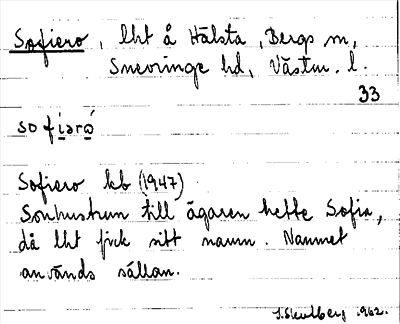 Sofiero, lht å Hälsta, Bergs sn,
Snevringe hd, Västm. l.
33
sofiərώ
Sofiero kb (1947)
Sonhustrun till ägaren hette Sofia,
då lht fick sitt namn. Namnet
används sällan.
1962.